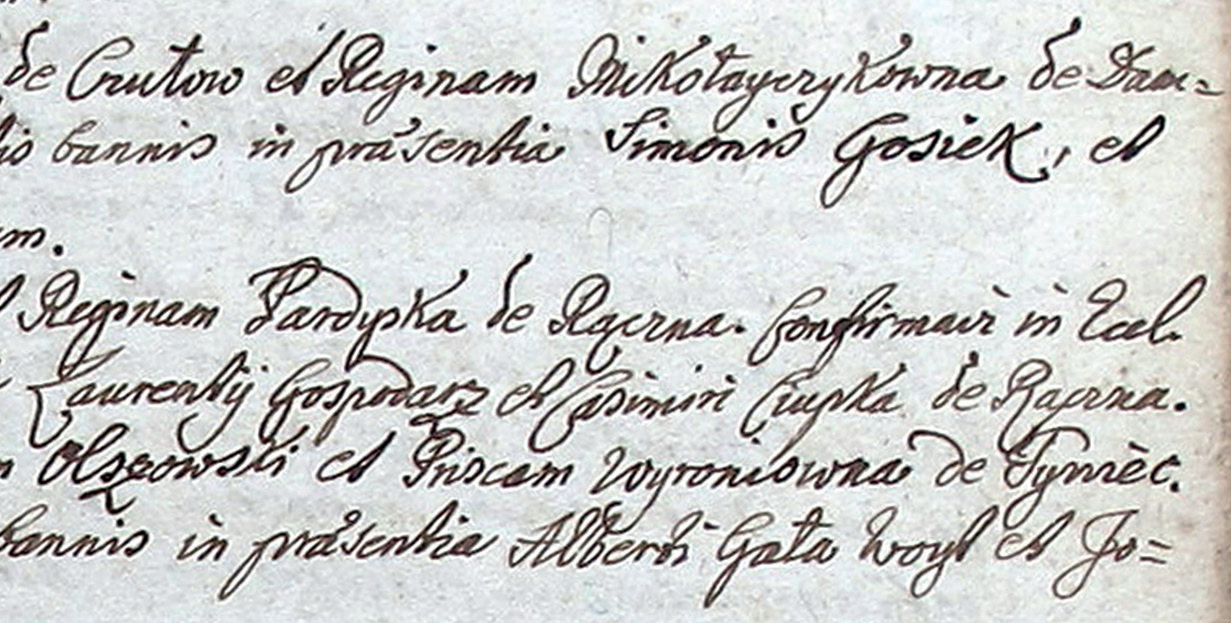 de Czułow et Reginam Mikołayczykowna de Dam=
bannis in præsentia Simonis Gosiek, et
m.
Reginam Pardyska de Rączna. Confirmavi in Eccl.
Laurentij Gospodarz et Casimiri Ciupka de Rączna.
Olszowski et Priscam Wyroniowna de Tyniec.
bannis in præsentia Alberti Gała Woyt et Jo=